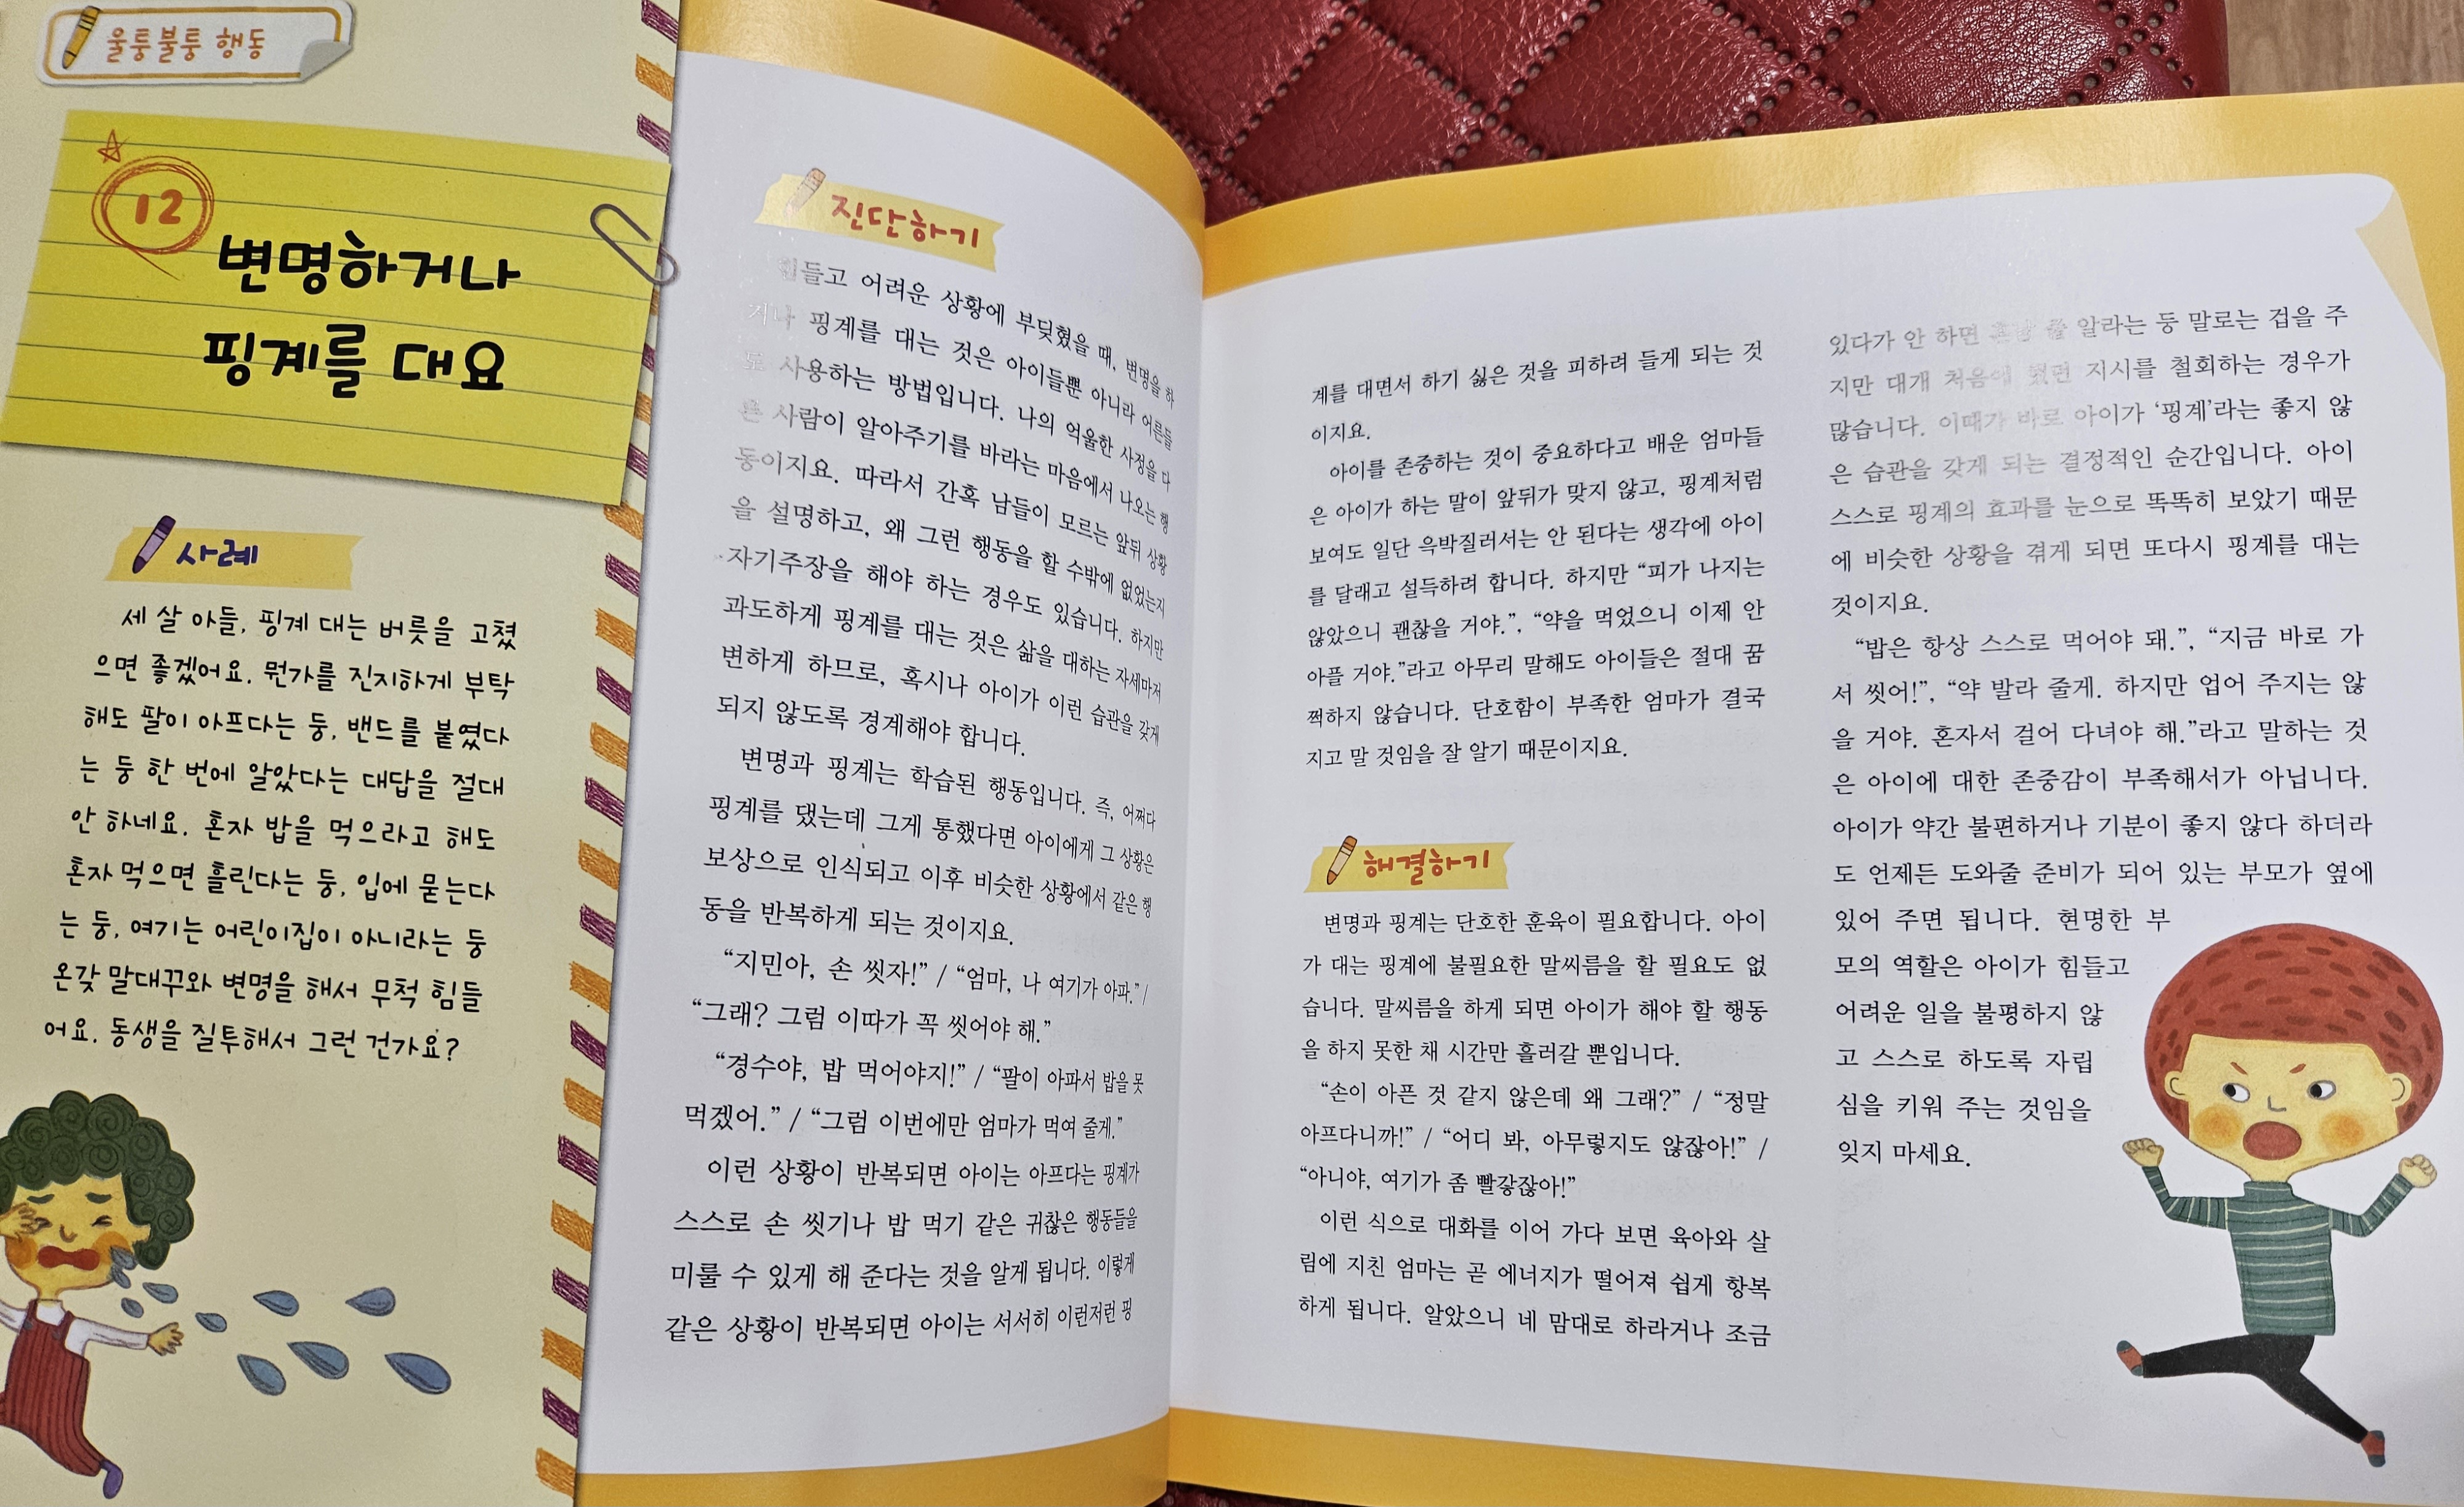 울퉁불퉁 행동
12
변명하거나
핑계를 대요
사례
세 살 아들, 핑계 대는 버릇을 고쳤
으면 좋겠어요. 뭔가를 진지하게 부탁
해도 팔이 아프다는 둥, 밴드를 붙였다
는 둥 한 번에 알았다는 대답을 절대
안 하네요. 혼자 밥을 먹으라고 해도
혼자 먹으면 흘린다는 둥, 입에 묻는다
는 둥, 여기는 어린이집이 아니라는 둥
온갖 말대꾸와 변명을 해서 무척 힘들
어요. 동생을 질투해서 그런 건가요?
진단하기
힘들고 어려운 상황에 부딪혔을 때, 변명을 하
거나 핑계를 대는 것은 아이들뿐 아니라 어른들
도 사용하는 방법입니다. 나의 억울한 사정을 다
른 사람이 알아주기를 바라는 마음에서 나오는 행
동이지요. 따라서 간혹 남들이 모르는 앞뒤 상황
을 설명하고, 왜 그런 행동을 할 수밖에 없었는지
자기주장을 해야 하는 경우도 있습니다. 하지만
과도하게 핑계를 대는 것은 삶을 대하는 자세마저
변하게 하므로, 혹시나 아이가 이런 습관을 갖게
되지 않도록 경계해야 합니다.
변명과 핑계는 학습된 행동입니다. 즉, 어쩌다
핑계를 댔는데 그게 통했다면 아이에게 그 상황은
보상으로 인식되고 이후 비슷한 상황에서 같은 행
동을 반복하게 되는 것이지요.
“지민아, 손 씻자!” / “엄마, 나 여기가 아파.” /
“그래? 그럼 이따가 꼭 씻어야 해.”
“경수야, 밥 먹어야지!” / “팔이 아파서 밥을 못
먹겠어.” / “그럼 이번에만 엄마가 먹여 줄게.”
이런 상황이 반복되면 아이는 아프다는 핑계가
스스로 손 씻기나 밥 먹기 같은 귀찮은 행동들을
미룰 수 있게 해 준다는 것을 알게 됩니다. 이렇게
같은 상황이 반복되면 아이는 서서히 이런저런 핑
계를 대면서 하기 싫은 것을 피하려 들게 되는 것
이지요.
아이를 존중하는 것이 중요하다고 배운 엄마들
은 아이가 하는 말이 앞뒤가 맞지 않고, 핑계처럼
보여도 일단 윽박질러서는 안 된다는 생각에 아이
를 달래고 설득하려 합니다. 하지만 “피가 나지는
않았으니 괜찮을 거야.”, “약을 먹었으니 이제 안
아플 거야.”라고 아무리 말해도 아이들은 절대 꿈
쩍하지 않습니다. 단호함이 부족한 엄마가 결국
지고 말 것임을 잘 알기 때문이지요.
해결하기
변명과 핑계는 단호한 훈육이 필요합니다. 아이
가 대는 핑계에 불필요한 말씨름을 할 필요도 없
습니다. 말씨름을 하게 되면 아이가 해야 할 행동
을 하지 못한 채 시간만 흘러갈 뿐입니다.
“손이 아픈 것 같지 않은데 왜 그래?” / “정말
아프다니까!” / “어디 봐, 아무렇지도 않잖아!” /
“아니야, 여기가 좀 빨갛잖아!”
이런 식으로 대화를 이어 가다 보면 육아와 살
림에 지친 엄마는 곧 에너지가 떨어져 쉽게 항복
하게 됩니다. 알았으니 네 맘대로 하라거나 조금
있다가 안 하면 혼날 줄 알라는 둥 말로는 겁을 주
지만 대개 처음에 했던 지시를 철회하는 경우가
많습니다. 이때가 바로 아이가 ‘핑계’라는 좋지 않
은 습관을 갖게 되는 결정적인 순간입니다. 아이
스스로 핑계의 효과를 눈으로 똑똑히 보았기 때문
에 비슷한 상황을 겪게 되면 또다시 핑계를 대는
것이지요.
“밥은 항상 스스로 먹어야 돼.”, “지금 바로 가
서 씻어!”, “약 발라 줄게. 하지만 업어 주지는 않
을 거야. 혼자서 걸어 다녀야 해.”라고 말하는 것
은 아이에 대한 존중감이 부족해서가 아닙니다.
아이가 약간 불편하거나 기분이 좋지 않다 하더라
도 언제든 도와줄 준비가 되어 있는 부모가 옆에
있어 주면 됩니다. 현명한 부
모의 역할은 아이가 힘들고
어려운 일을 불평하지 않
고 스스로 하도록 자립
심을 키워 주는 것임을
잊지 마세요.